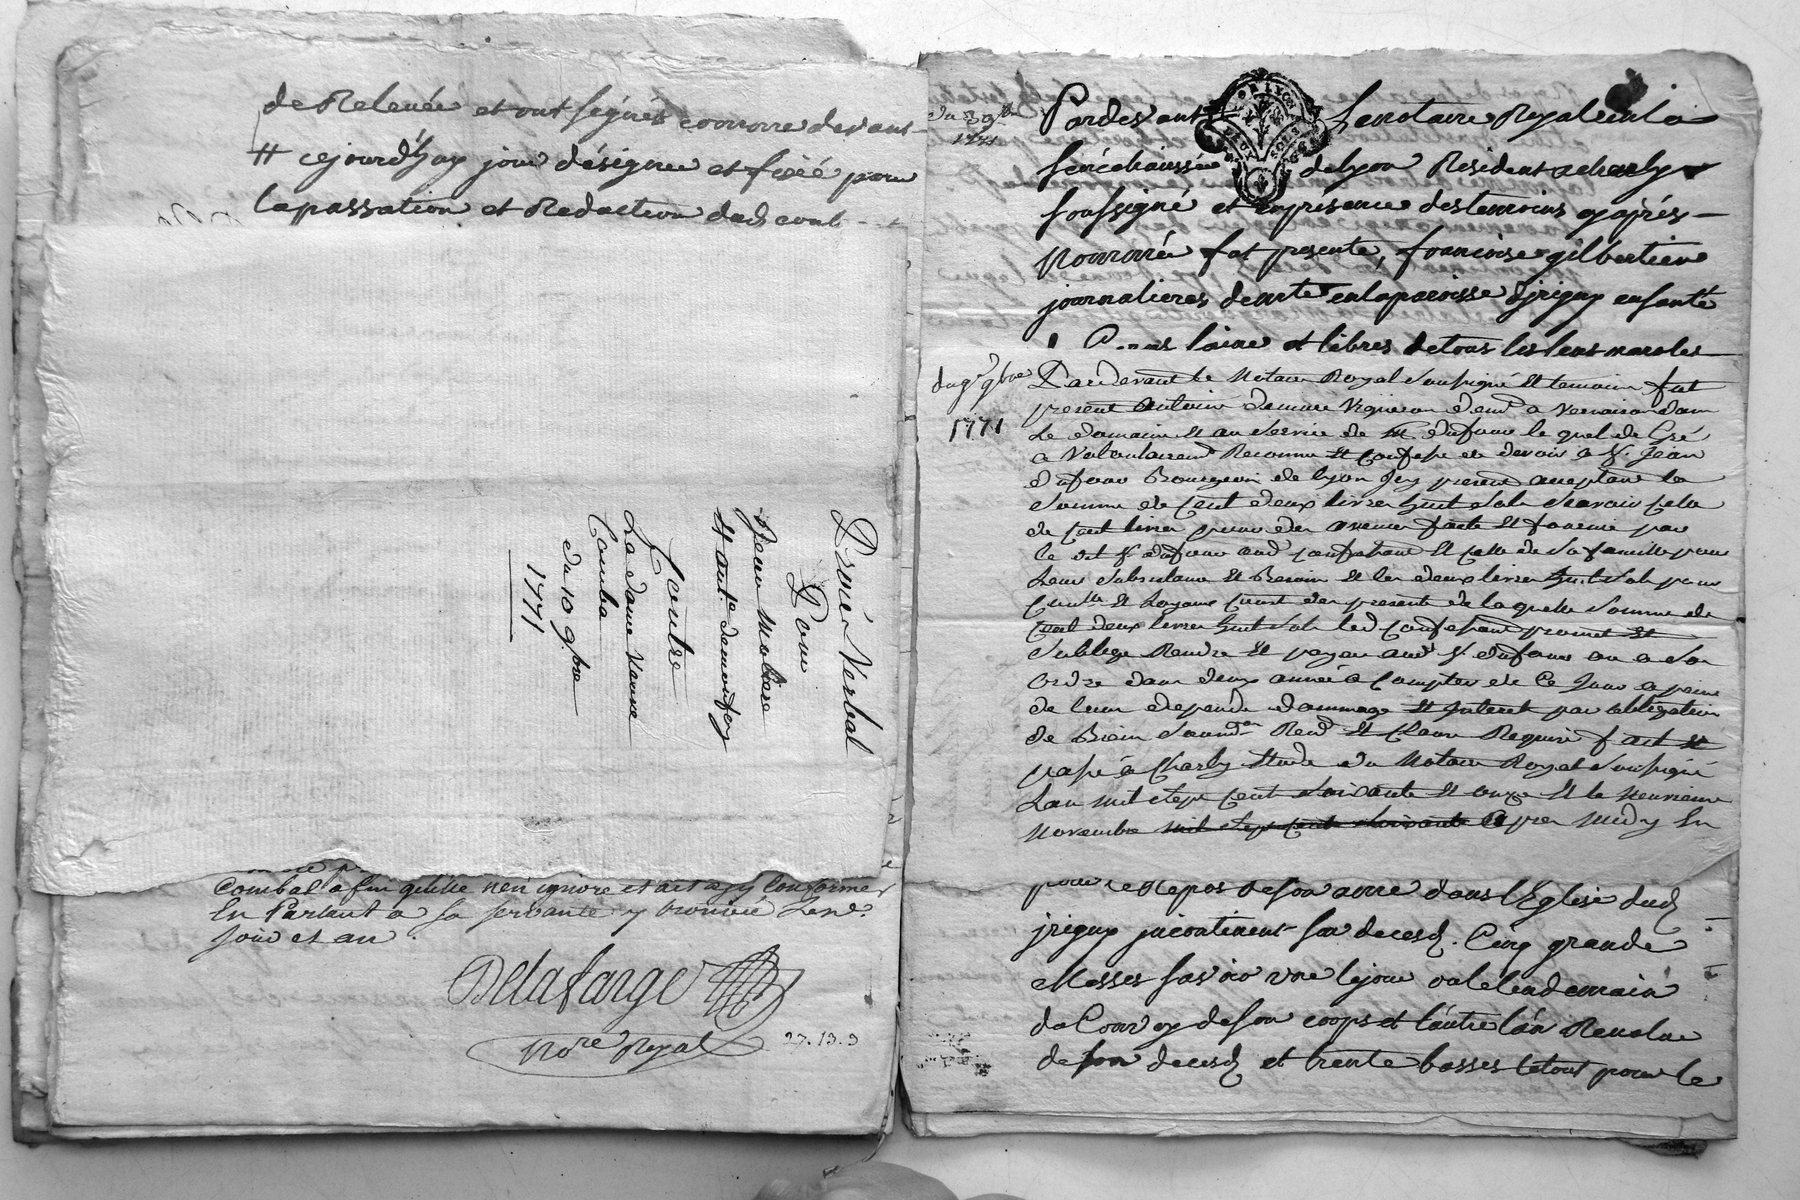 de Relevée et ont signés comme devant
# cejourd'huy jour désignée et fixé pour
la passation et Redaction dud cont
Procès Verbal
Pour
Jean Matiere
et ant.e
Contre
La dame Veuve
Comba
du 10 9bre
1771
Combat afin qu'elle n'en ignore et ait a sy Conformer
En Parlant a sa servante y trouvée Les d.
jour et an.
Delafarge
No.re Royal
27.13.9
du 3 9bre
1771
Pardevant Le notaire Royal en la
senéchaussée de Lyon Résident a charly
soussigné et en présence des temoins cy après
nommés fut presente, francoise gilbertier
journalieres demte en la paroisse d'jrigny enfante
laine et libres de tous les
du 9e 9bre
1771
Pardevant le Notaire Royal Soussigné Et temoins fut
present Antoine Vigneron demt a Vernaison dans
Le domaine Et au Service de M. dufour le quel de Gré
a Volontairemt Reconnu Et Confessé de devoir a Sr. Jean
dufour Bourgeois de Lyon Jcy present acceptant la
Somme de Cent deux livres huit Sols Scavoir Celle
de Cent livres pour des avances faite Et fournie par
Le dit Sr dufour aud Confessant Et Celle de Sa famille pour
Leur Subsistance Et Besoin Et les deux livres huit Sols pour
Coust des presente de la quelle Somme de
Cent deux livres huit Sols led Confessant promet Et
S'oblige Rendre Et payer aud Sr dufour ou a Son
Ordre dans deux années a Compter de Ce Jour a peine
de tous depends dommage Et Interet par obligation
de Biens Soum.on Ren.d Et Clause Requise fait Et
passé à Charly Etude du Notaire Royal Soussigné
Lan mil Sept Cent Soixante Et onze Et le neuvieme
Novembre mil Sept Cent Soixante Apres midy En
pour le Repos de son ame dans l'Eglise dud
jrigny jncontinent son decesd. Cinq grande
Messes savoir une le jour ou le lendemain
du Convoy de son corps et l'autre l'an Revolue
de son decesd et trente basses le tout pour le